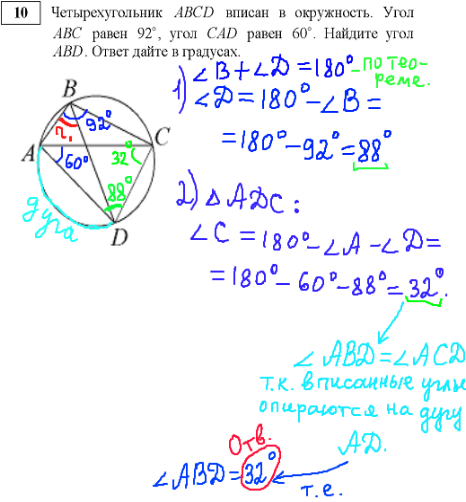 10 Четырехугольник ABCD вписан в окружность. Угол
ABC равен 92°, угол CAD равен 60°. Найдите угол
ABD. Ответ дайте в градусах.
B
92°
?
A
60°
32°
C
88°
D
дуга
1) ∠B + ∠D = 180° - по тео-
реме.
∠D = 180° - ∠B =
= 180° - 92° = 88°
2) △ADC:
∠C = 180° - ∠A - ∠D =
= 180° - 60° - 88° = 32°.
∠ABD = ∠ACD
т.к. вписанные углы
опираются на дугу
AD.
т.е.
Отв.
∠ABD = 32°